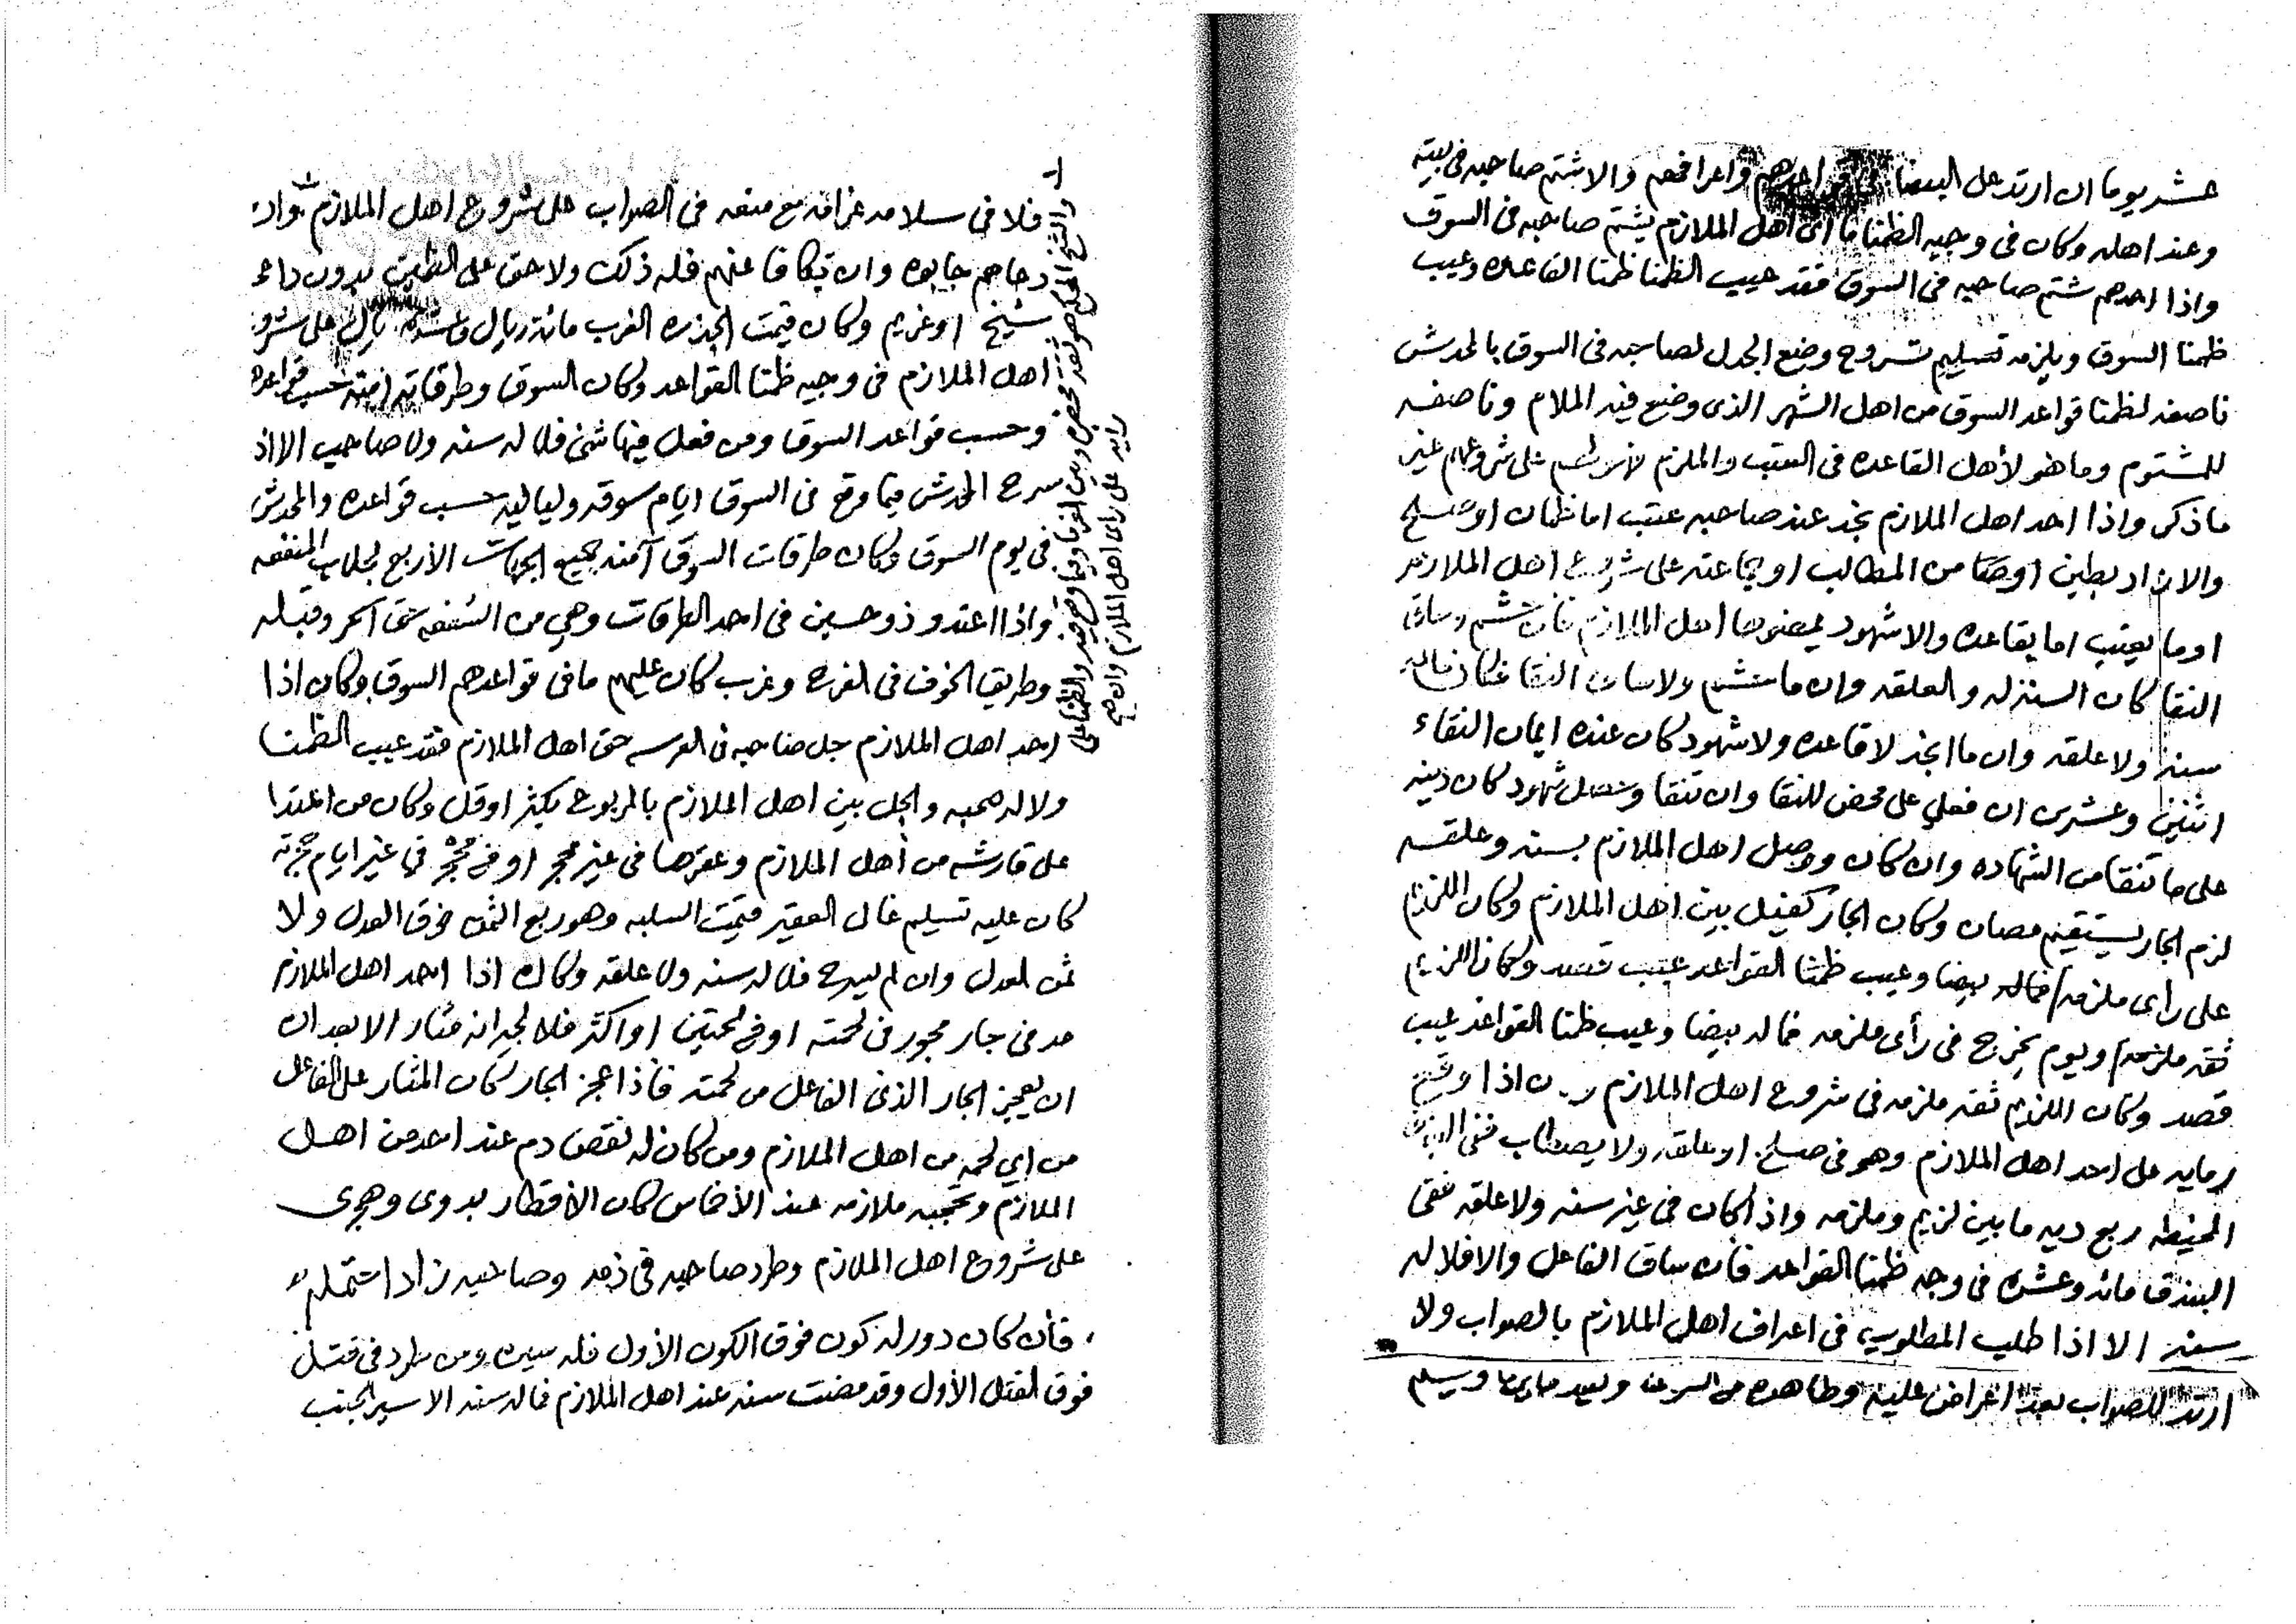 عشر يوما ان ارتد على البيضا واعرافهم والا شتم صاحبه في بيته
وعند اهله وكان في وجيه الظمنا اهل الملازم يشتم صاحبه في السوق
واذا احدهم شتم صاحبه في السوق فقد عيب الظمنا ظمنا القاعده وعيب
ظمنا السوق ويلزمه تسليم شروع وضع الجدل لصاحبه في السوق بالمحدش
ناصفه لظمنا قواعد السوق من اهل الشهر الذي وضع فيه الملام وناصفه
للمشتوم وما هو لأهل القاعده في العتب والملزم على شروعهم غير
ما ذكر واذا احد اهل الملازم بخذ عند صاحبه عتب اما ظمان او صلح
والا زاد بطين او من المطالب او على شروع اهل الملازم
او ما يعيب اما بقاعده والا شهود اهل الملازم فان عشم وساق
النقا كان السنة له والعلقه وان ما عشم ولا ساق النقا فكان فماله
سنه ولا علقه وان ما انجذ لا قاعده ولا شهود كان عنده ايمان النقاء
اثنين وعشرين ان فعلي على محض للنقا وان تنقا وحصل شهود كان دينه
على ما تنقا من الشهاده وان كان ووصل اهل الملازم بسنه وعلقه
لزم الجار يستقيم مصان وكان الجار كفيل بين اهل الملازم وكان اللزيم
على رأى ملزمه فماله بيضا وعيب ظمنا القواعد عيب قصد وكان اللزيم
ثقه ملزمه ويوم يخرج في رأى ملزمه فماله بيضا وعيب ظمنا القواعد عيب
قصد وكان اللزيم ثقه ملزمه في شروع اهل الملازم اذا وقع
رمايه على احد اهل الملازم وهو في صلح او علقه ولا يصطاب ففي
المخيطه ربع ديه ما بين لزيم وملزمه واذا كان في غير سنه ولا علقه ففي
البندق مائه وعشره في وجه ظمنا القواعد فان ساق الفاعل والا فلا له
سنه الا اذا طلب المطلوب في اعراف اهل الملازم بالصواب ولا
ارتد للصواب بعد اعراض عليه وطاهده من السرعه وبعد وسلم
فلا في سلامه غرافه مع منعه في الصواب على شروع اهل الملازم وان
دعاهم جابوه وان تكافا عنهم فله ذلك ولا حق على الظمين بدون داعي
شيخ او غريم وكان قيمت الجذره الغرب مائة ريال ريال على شروع
اهل الملازم في وجيه ظمنا القواعد وكان السوق وطرقاته امنه حسب قواعده
وحسب قواعد السوق ومن فعل فيها شي فلا له سنه ولا صاحب الا اذ
سرح المحدش فيما وقع في السوق ايام سوقه ولياليه حسب قواعده والمحدش
في يوم السوق وكان طرقات السوق آمنه جميع الجهات الأربع لجلاب المنفعه
واذا اعتدو ذو حسين في احد الطرقات وهي من الشنفه حق آلحر وقبله
وطريق الخوف في الفرح وغرب كان عليهم ما في قواعدهم السوق وكان اذا
احد اهل الملازم جل صاحبه في الغرسه حق اهل الملازم فقد عيب الظمنا
ولا له صحبه والجل بين اهل الملازم بالمربوع بكثر او قل وكان من اعتدا
على قارشه من أهل الملازم وعقرها في غير محجر او في محجر في غير ايام حجرته
كان عليه تسليم غال العقير قيمت السلبه وهو ربع الثمن فوق العدل ولا
ثمن العدل وان لم يسرح فلا له سنه ولا علقه وكان اذا احد اهل الملازم
مد في جار مجور في لحمته او في لحمتين او اكثر فلا لجيرانه مثار الا بعد ان
ان يعجز الجار الذي الفاعل من لحمته فاذا عجز الجار كان المثار على الفاعل
من اي لحمه من اهل الملازم ومن كان له نقص دم عند احد من اهل
الملازم وتحجبه ملازمه عند الأخماس كان الأقطار بدوي وهجري
على شروع اهل الملازم وطرد صاحبه في ذمه وصاحبه زاد احتمله
فأن كان دورله كون فوق الكون الأول فله سيره ومن طرد في قتل
فوق القتل الأول وقد مضت سنه عند اهل الملازم فماله سنه الا سير الجنب
رايه على راى اهل الملازم وان صح